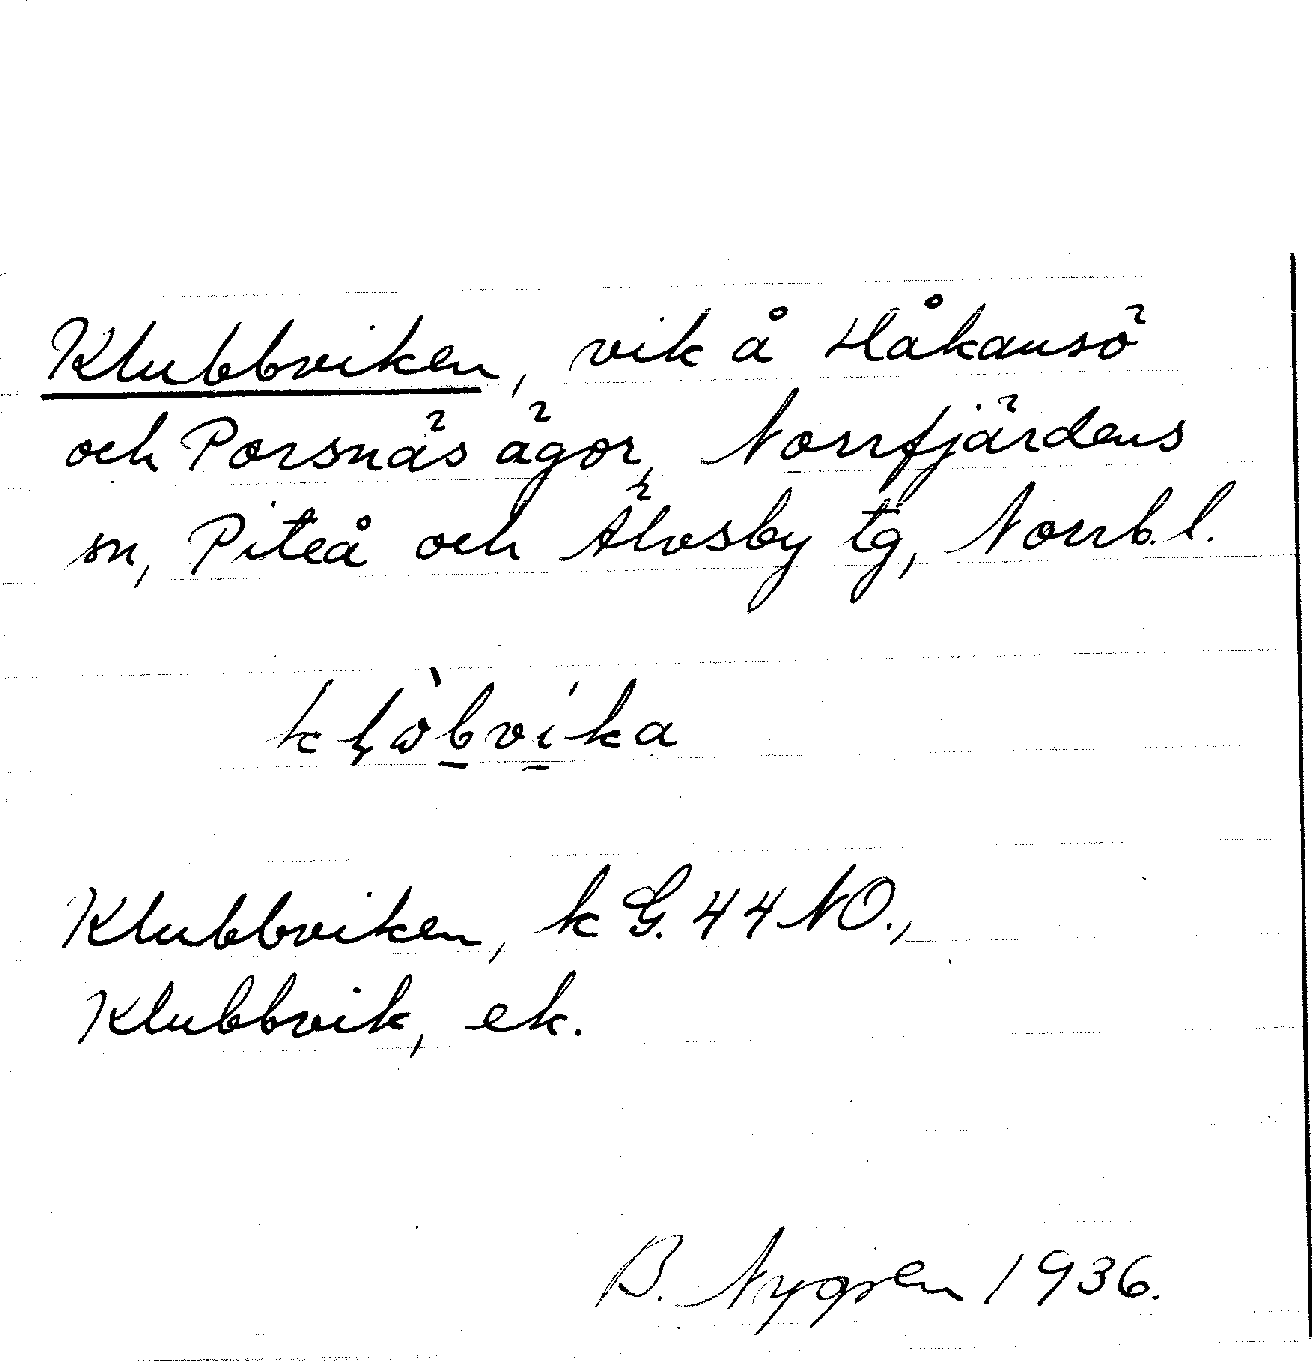 Klubbviken, vik å Håkansö
och Porsnäs ägor, Norrfjärdens
sn, Piteå och Älvsby tg, Norrb. l.
Klubbviken, k G. 44 NO.,
Klubbvik, ek.
B. Nygren 1936.